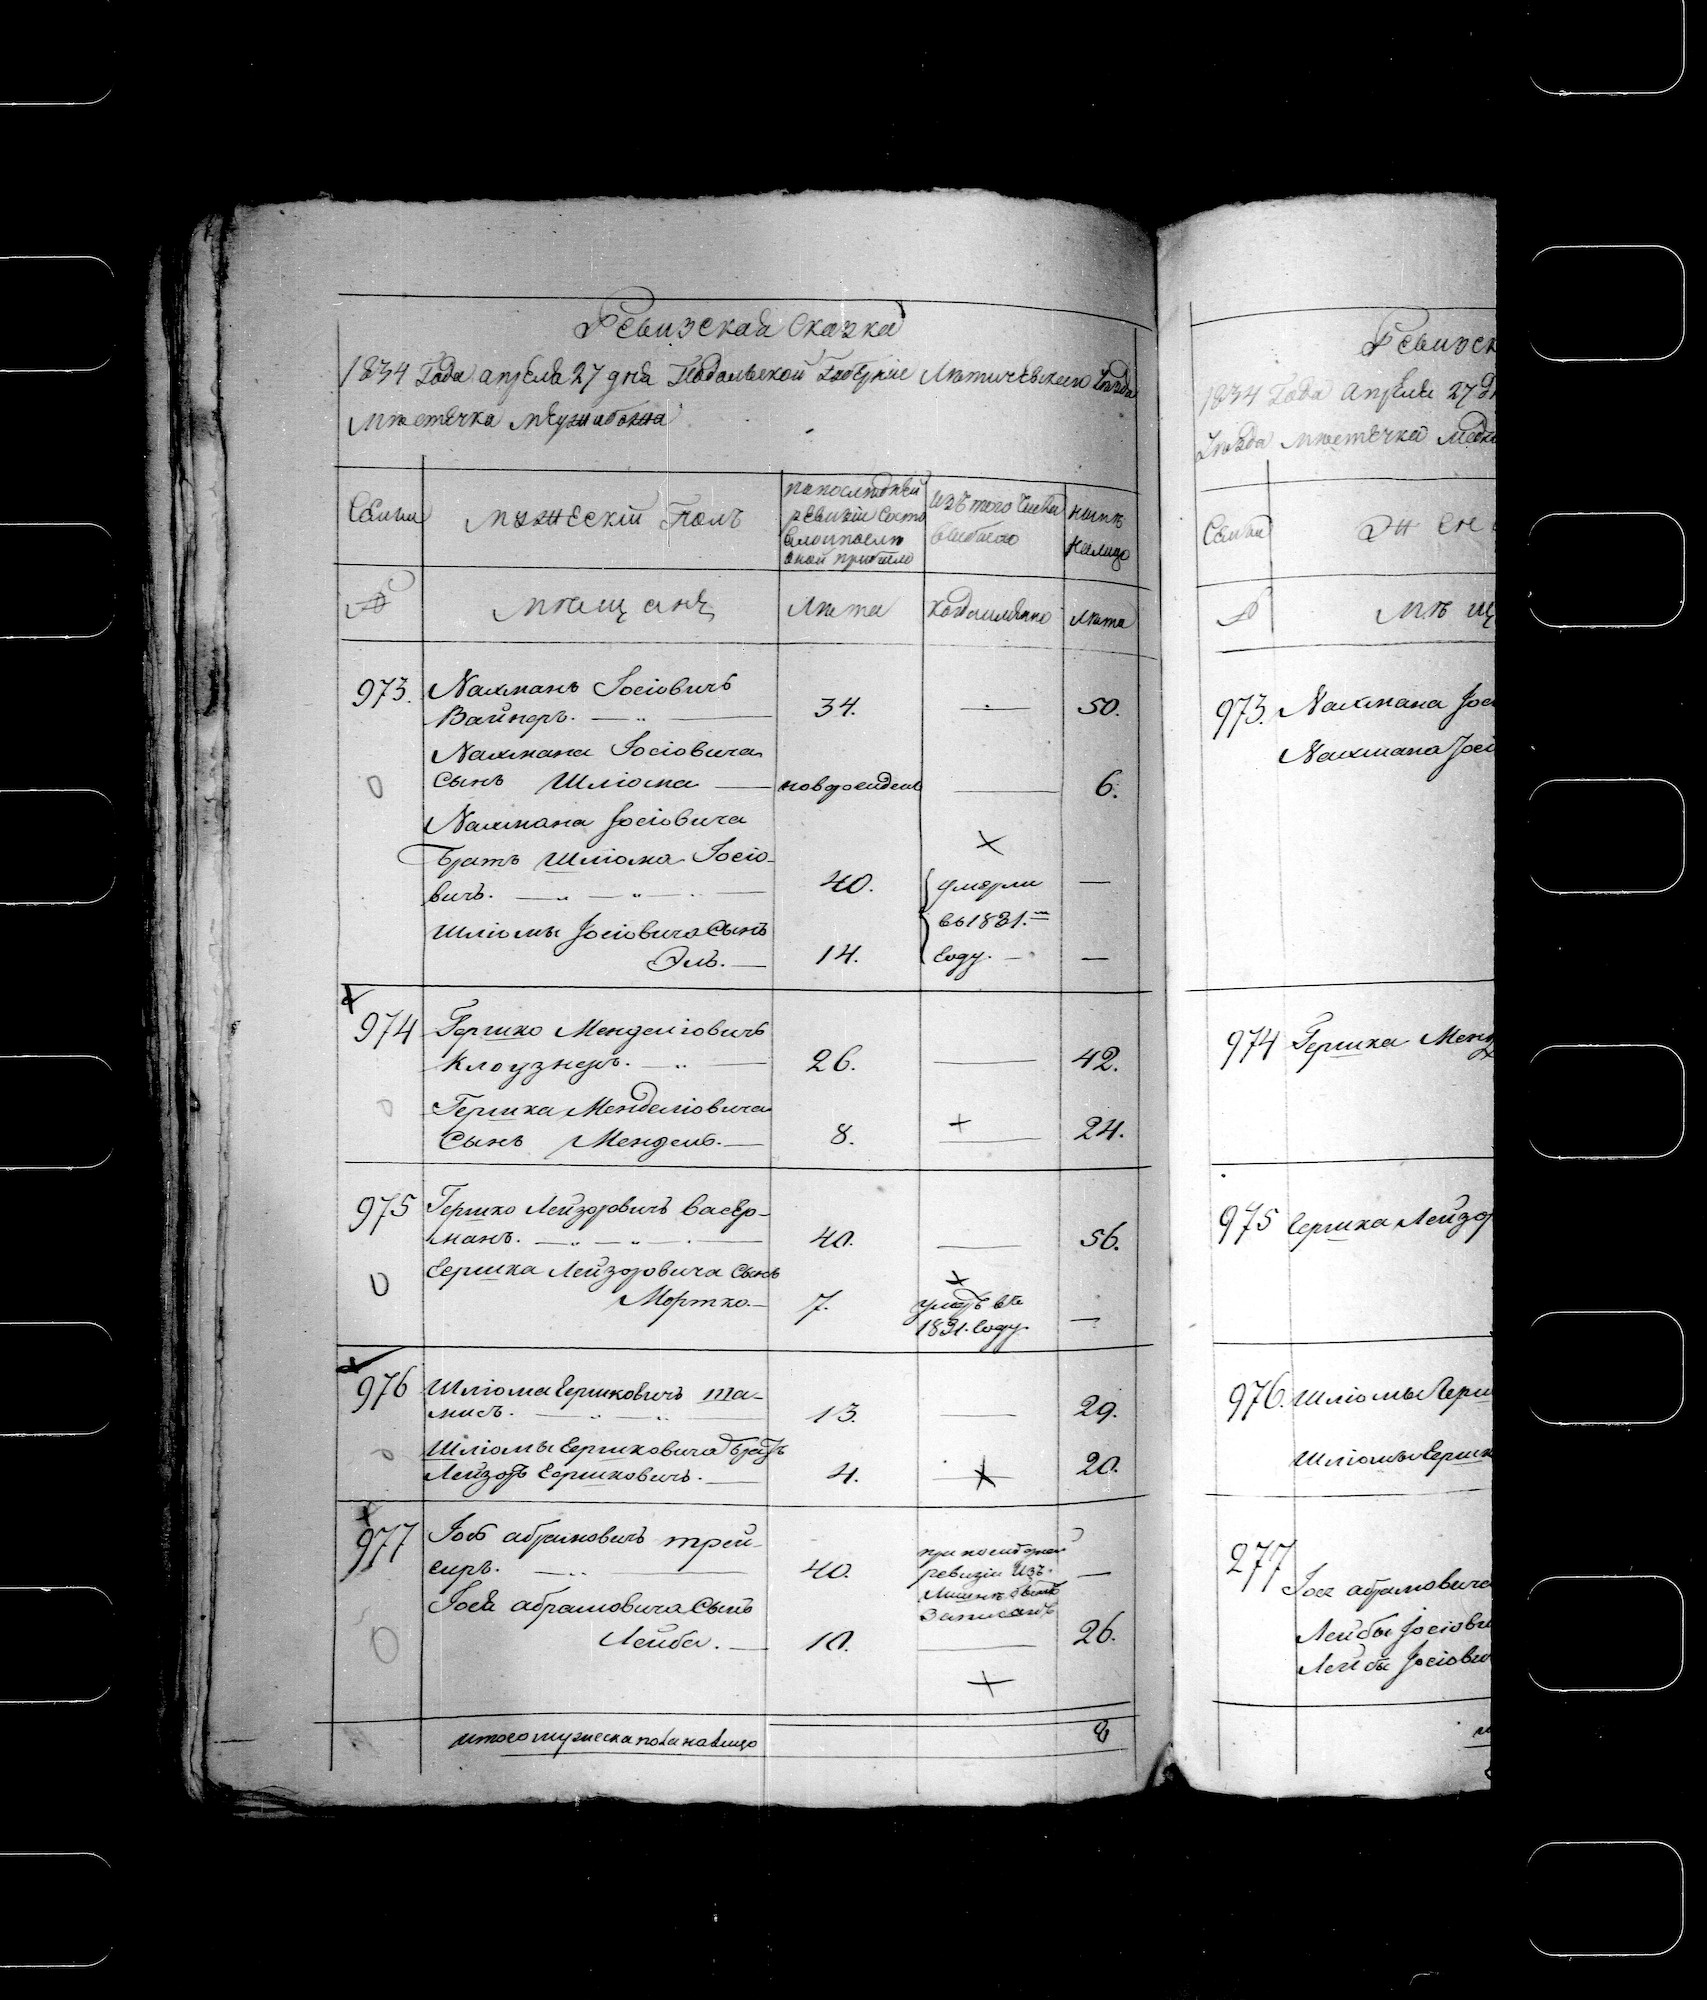 Ревизская Сказка
1834 Года апреля 27 дня Подольской Губернiи Летичевского Уезда
Мѣстечка Межибожа
Семьи
Мужескiй Полъ
по последней
ревизiи состо
яло и после
оной прибыло
Изъ того числа
выбыло
ныне
налицо
№
мѣщане
Лѣта
Когда именно
Лѣта
973.
Нахманъ Iосiовичъ
Вайнеръ. — „ —
34.
—
50.
Нахмана Iосiовича
сынъ Шлiома —
новорожденъ
—
6.
Нахмана Iосiовича
братъ Шлiома Iосiо-
вичъ. — „ — „ —
40.
умерли
въ 1831.м
Году. —
—
Шлiомы Iосiовича Сынъ
Эль. —
14.
—
974
Гершко Менделiовичъ
Клоузнеръ. — „ —
26.
—
42.
Гершка Менделiовича
Сынъ Мендель. —
8.
—
24.
975
Гершко Лейзоровичъ Васер-
манъ. — „ — „ —
40.
—
56.
Гершка Лейзоровича Сынъ
Мортко. —
7.
умеръ въ
1831. Году.
—
976
Шлiома Гершковичъ Та-
мисъ. — „ — „ —
13.
—
29.
Шлiомы Гершковича братъ
Лейзоръ Гершковичъ. —
4.
—
20.
977
Iось абрамовичъ трей-
сиръ. — „ —
40.
ревизiи Изъ-
Записанъ
—
Iося абрамовича Сынъ
Лейба. —
10.
—
26.
итого мужеска пола налицо
8
Ревизск
1834 Года Апреля 27 д
Уезда мѣстечка Меджи
Семьи
Жен
№
мѣщ
973. Нахмана Iос
Нахмана Iосi
974 Гершка Менд
975 Гершка Лейзор
976. Шлiомы Герш
Шлiомы Гершк
277
Iося абрамовича
Лейбы Iосiови
Лейбы Iосiови